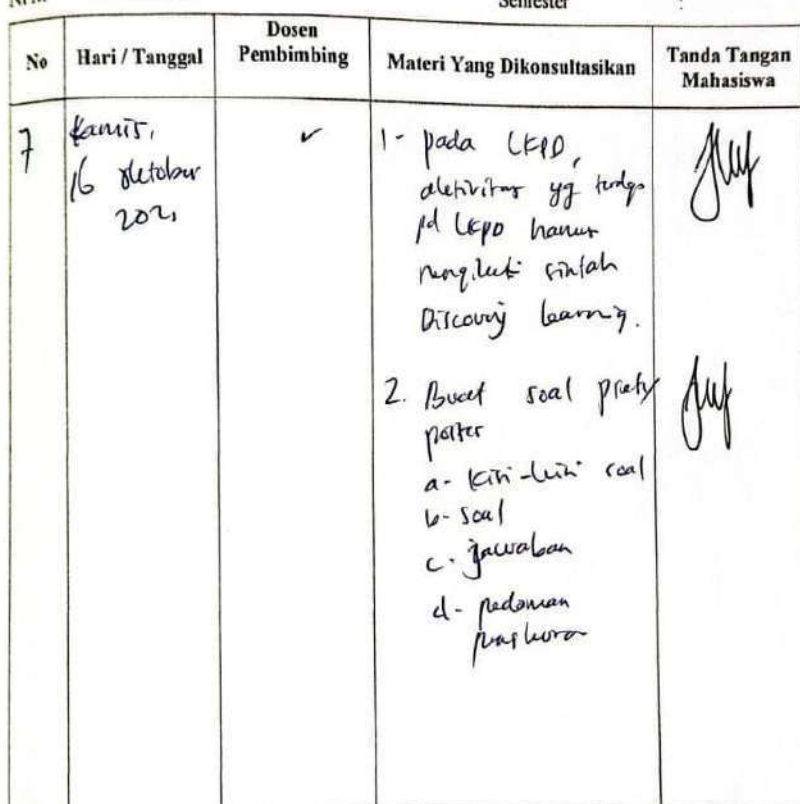 Semester :
No Hari / Tanggal Dosen Pembimbing Materi Yang Dikonsultasikan Tanda Tangan Mahasiswa
7 Kamis,
16 Oktober
202
1- pada LKPD,
aktivitas yg
pd LKPD harus
mengikuti sintah
Discovery learning.
2. Buat soal
a- Kisi-kisi soal
b- Soal
c- Jawaban
d- pedoman